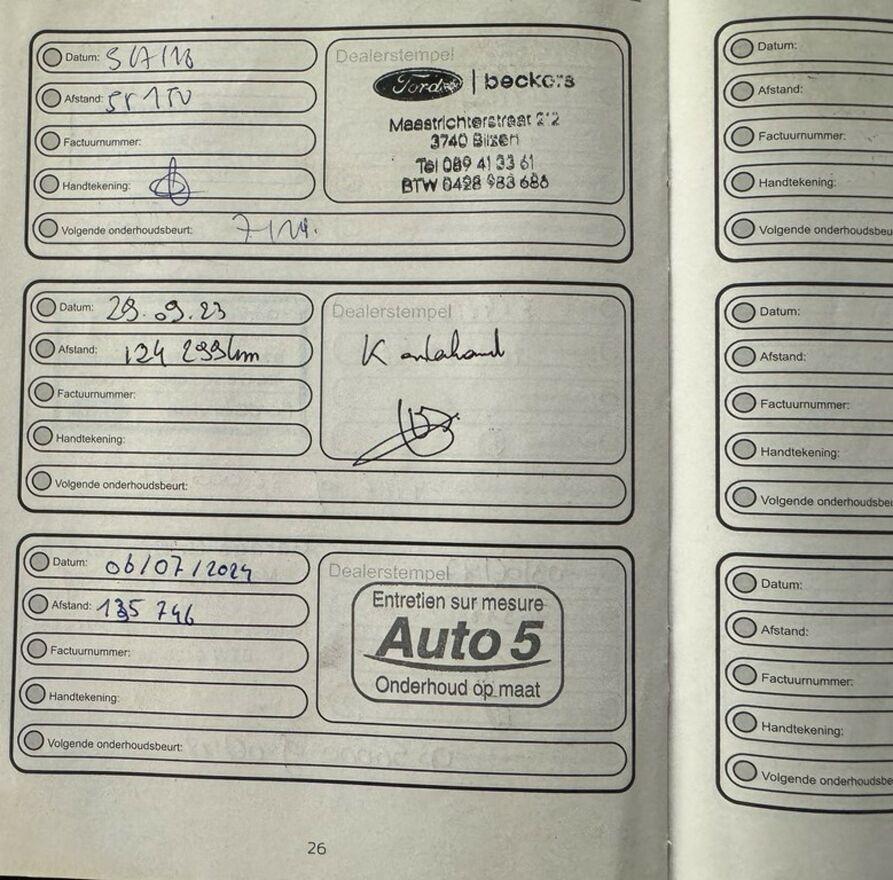 Datum:
Afstand:
Factuurnummer:
Handtekening:
Volgende onderhoudsbeurt:
Dealerstempel
Ford | beckers
Maastrichterstraat 212
3740 Bilsen
Tel 089 41 33 61
BTW 0428 983 686
Datum: 29.09.23
Afstand: 124 299km
Factuurnummer:
Handtekening:
Volgende onderhoudsbeurt:
Dealerstempel
Datum: 06/07/2024
Afstand: 135 746
Factuurnummer:
Handtekening:
Volgende onderhoudsbeurt:
Dealerstempel
Entretien sur mesure
Auto 5
Onderhoud op maat
26
Datum:
Afstand:
Factuurnummer:
Handtekening:
Volgende
Datum:
Afstand:
Factuurnummer:
Handtekening:
Volgende
Datum:
Afstand:
Factuurnummer:
Handtekening:
Volgende